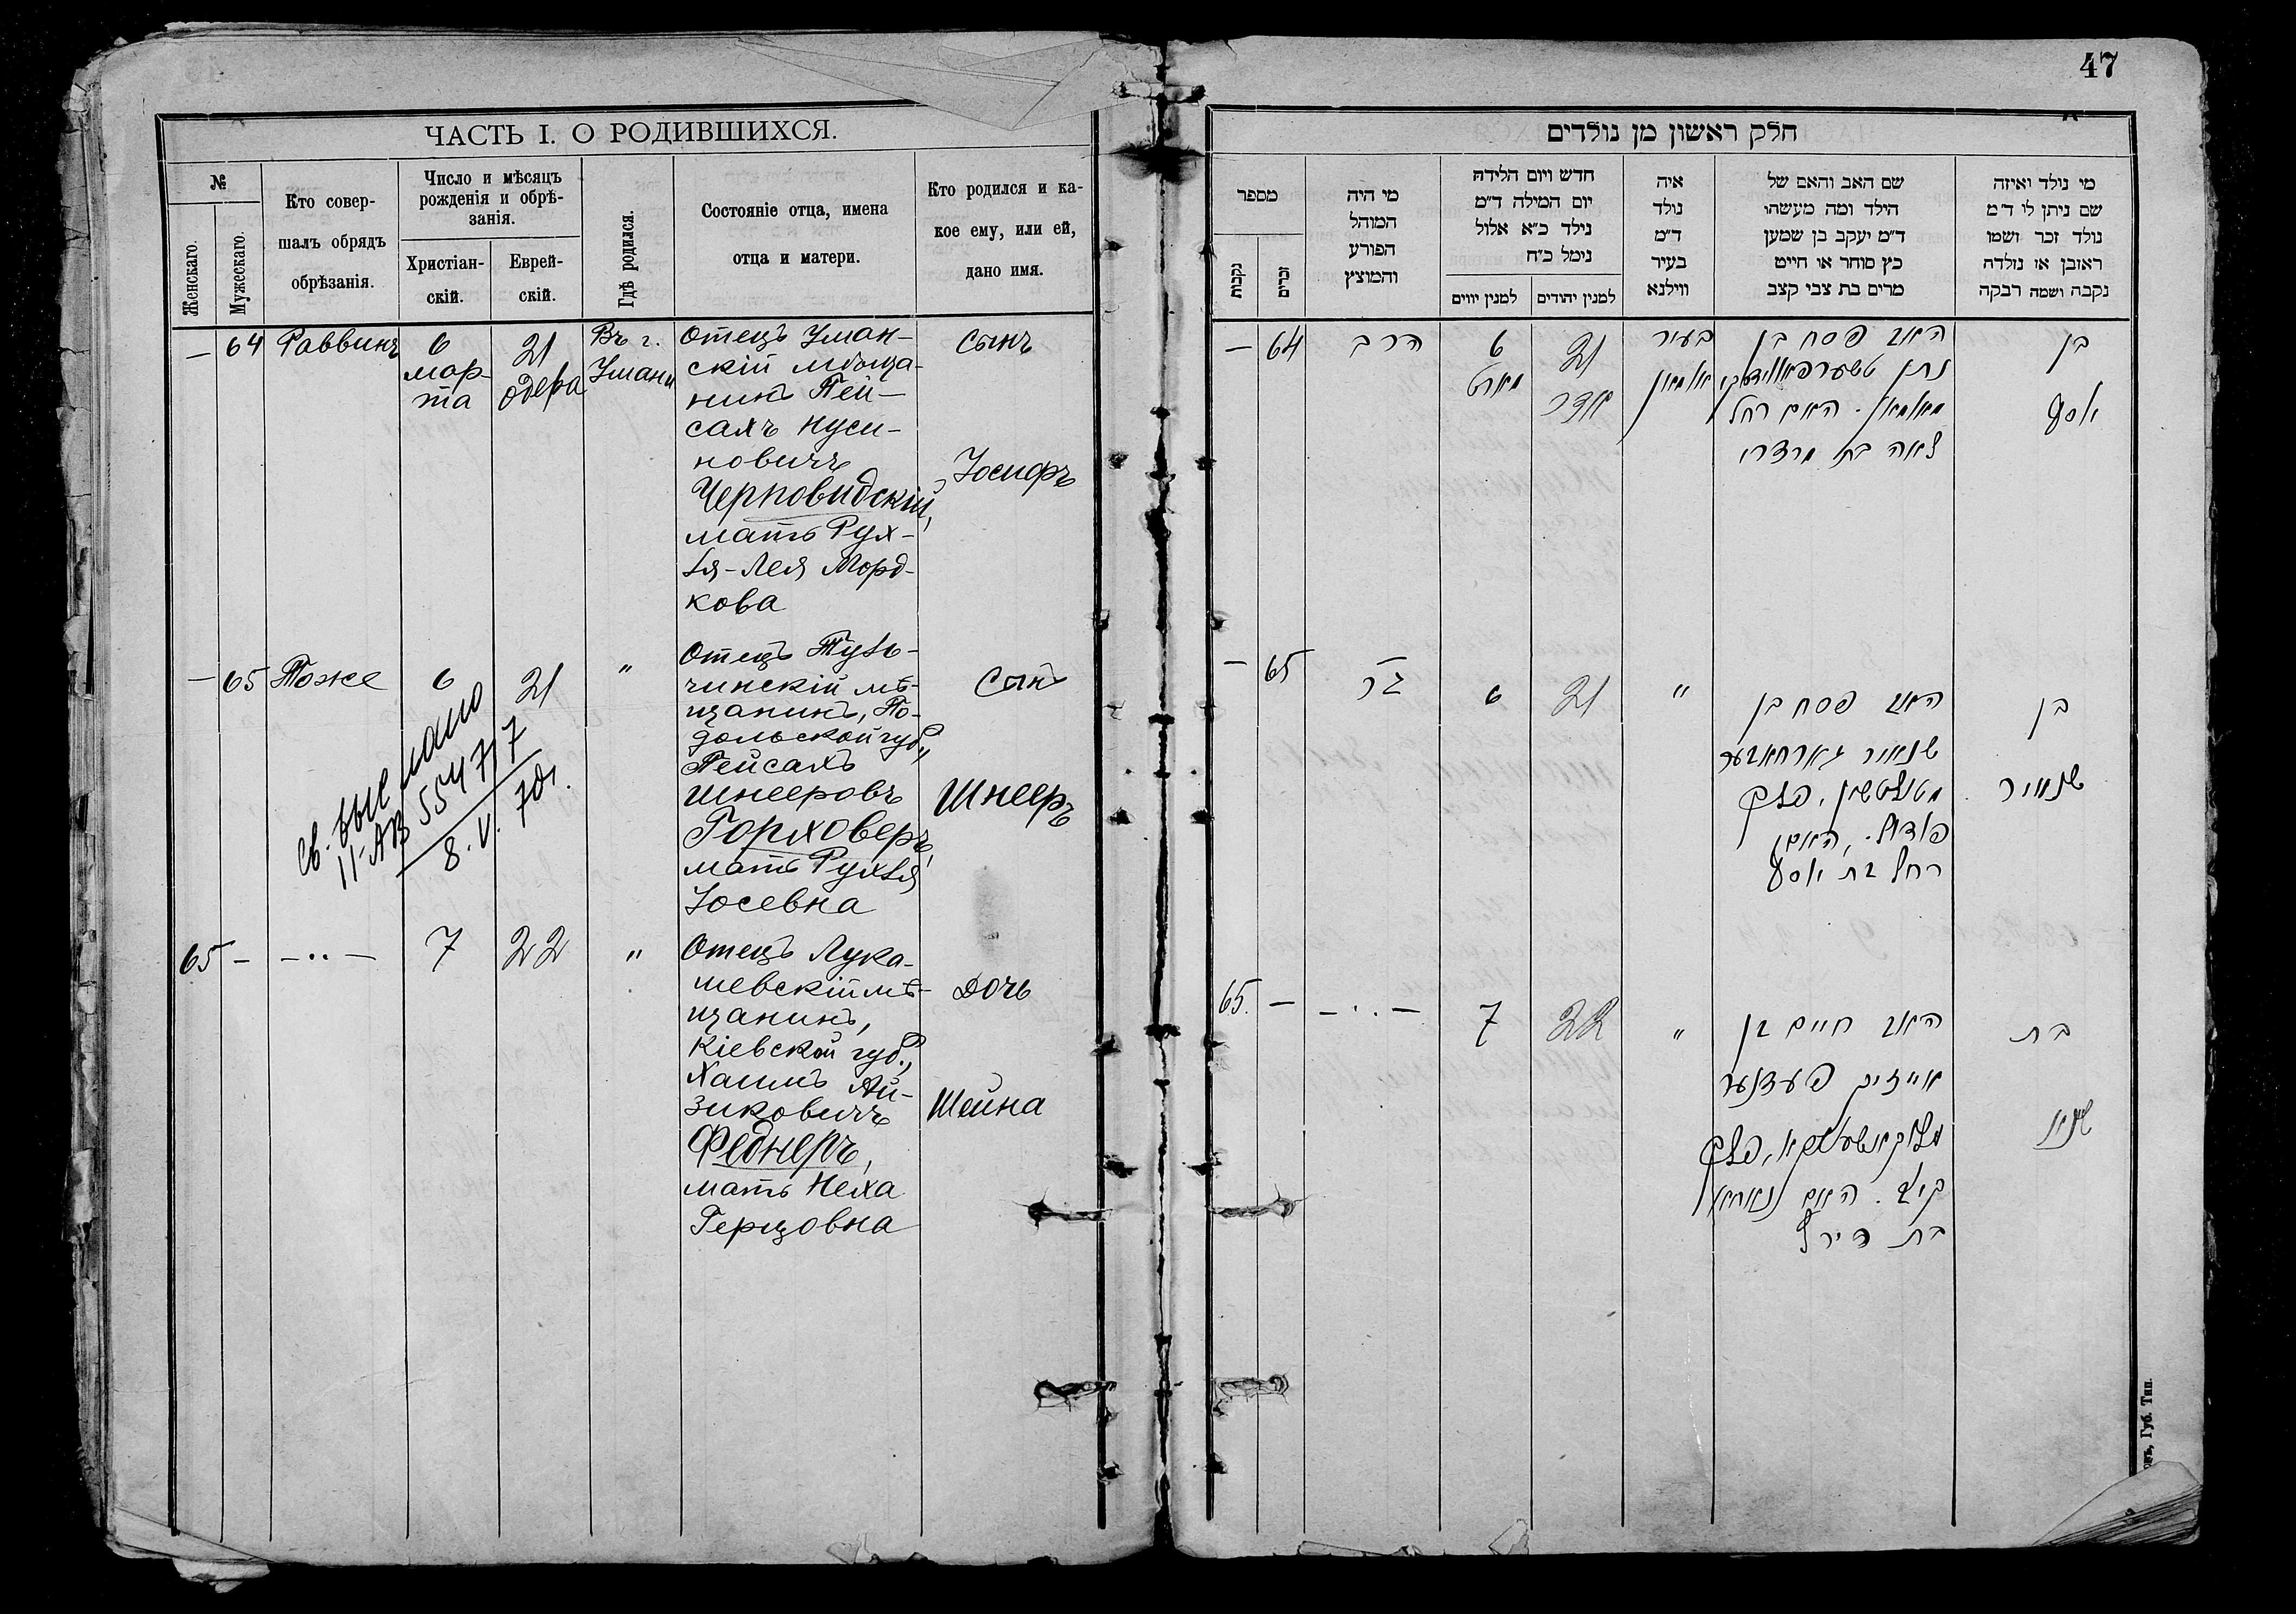 47
ЧАСТЬ I. О РОДИВШИХСЯ.
№
Женскаго.
Мужескаго.
Кто совер-
шалъ обрядъ
обрѣзанія.
Число и мѣсяцъ
рожденія и обрѣ-
занія.
Христіан-
скій.
Еврей-
скій.
Гдѣ родился.
Состояніе отца, имена
отца и матери.
Кто родился и ка-
кое ему, или ей,
дано имя.
— 64 Раввинъ
6
мар-
та
21
одера
Въ г.
Умани
Отецъ Уман-
скій мѣща-
нинъ Пей-
сахъ Нуси-
новичъ
Черповидскій,
мать Рух-
ля-Лея Морд-
кова
Сынъ
Іосифъ
— 65 Тоже
6
21
"
Отецъ Туль-
чинскій мѣ-
щанинъ, По-
дольской губ.,
Пейсахъ
Шнееровъ
Горховеръ,
мать Рухля
Іосевна
Сынъ
Шнееръ
св. выслано
II-АВ 554717
8.V.70г.
65 — — " —
7
22
"
Отецъ Лука-
шевскій мѣ-
щанинъ,
Кіевской губ.,
Хаимъ Ай-
зиковичъ
Феднеръ,
мать Неха
Герцовна
Дочь
Шейна
חלק ראשון מן נולדים
מספר
נקבות
זכרים
מי היה
המוהל
הפורע
והמוצץ
חדש ויום הלידה
יום המילה ד״מ
נילד כ״א אלול
נימל כ״ח
למנין יווים
למנין יהודים
איה
נולד
ד״מ
בעיר
ווילנא
שם האב והאם של
הילד ומה מעשהו
ד״מ יעקב בן שמען
כץ סוחר או חייט
מרים בת צבי קצב
מי נולד ואיזה
שם ניתן לו ד״מ
נולד זכר ושמו
ראובן או נולדה
נקבה ושמה רבקה
— 64
הרב
6
מארט
21
אדר
בעיר
אומאן
האב פסח בן
נתן טשערפאווידסקי
מאומאן. האם רחל
לאה בת מרדכי
בן
יוסף
— 65
6
21
"
האב פסח בן
שניאור גארחאווער
מטולטשין, פלך
פודול., האם
רחל בת יוסף
בן
שניאור
65. — — " —
7
22
"
האב חיים בן
אייזיק פעדנער
פלך
קיוב. האם נאחא
בת הירץ
בת
שיינא
Губ. Тип.